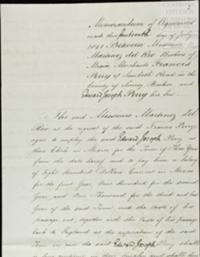 Memorandum of Agreement
made this fourteenth day of July
1841 Between Messieurs
Martinez del Rio Brothers of
Mexico Merchants Francis
Perry of Lambeth Road in the
County of Surrey and
Edward Joseph Perry his Son
The said Messieurs Martinez del
Rio at the request of the said Francis Perry
agree to employ the said Edward Joseph Perry as
their Clerk in Mexico for the Term of Three Years
from the date hereof and to pay him a Salary
of Eight Hundred Dollars Current in Mexico
for the first Year Nine Hundred for the second
Year and One Thousand for the third and last
Year of the said Term and the Costs of his
passage out together with the Costs of his passage
back to England at the expiration of the said
Term in case the said Edward Joseph Perry shall